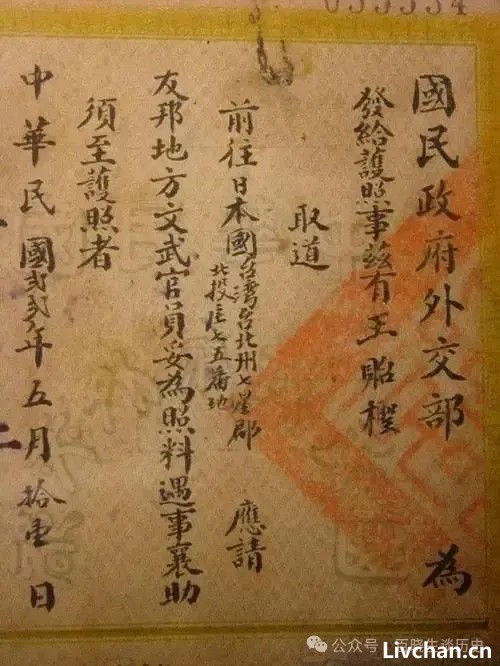 國民政府外交部 為
發給護照事茲有王貽
取道
前往日本國台灣台北州七星郡
北投庄七五番地 應請
友邦地方文武官員妥為照料遇事襄助
須至護照者
中華民國年五月拾壹日
公众号 · 百晓生谈历史
Livchan.cn